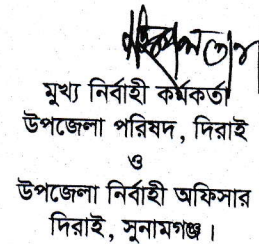 মুখ্য নির্বাহী কর্মকর্তা
উপজেলা পরিষদ, দিরাই
ও
উপজেলা নির্বাহী অফিসার
দিরাই, সুনামগঞ্জ।